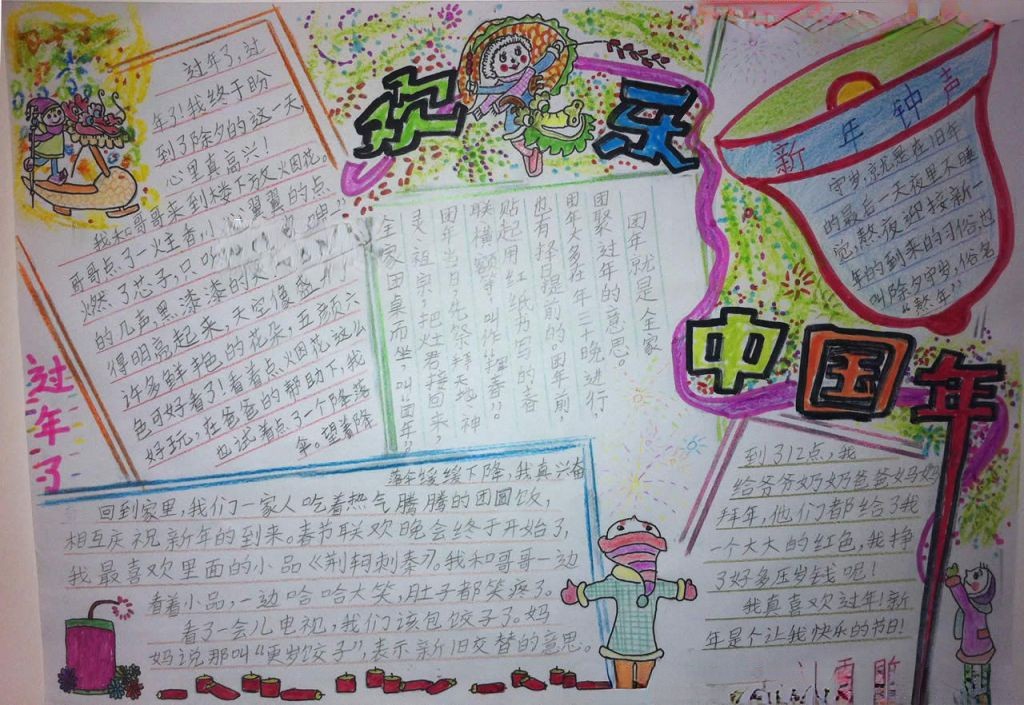 欢乐
中国年
过年了
过年了,过
年了!我终于盼
到了除夕的这一天,
心里真高兴!
我和哥哥来到楼下放火烟花。
哥哥点了一火主香,小心翼翼的点
燃了芯子,只听
的几声,黑漆漆的天空
得明亮起来,天空像盛开
许多鲜艳色的花朵,五颜六
色可好看了!看着点火烟花这么
好玩,在爸爸的帮助下,我
也试着点了一个降落
伞。望着降
落伞缓缓下降,我真兴奋
团年就是全家
团聚过年的意思。
团年大多在年三十晚进行,
也有择日提前的。团年前,
贴起用红纸为写的春
联横额等,叫作“挥春”。
团年当日,先祭拜天地、神
灵、祖宗,把灶君接回来,
全家团桌而坐,叫“团年”
新年钟声
守岁,就是在旧年
的最后一天夜里不睡
觉,熬夜迎接新一
年的到来的习俗,也
叫除夕守岁,俗名
“熬年”
回到家里,我们一家人吃着热气腾腾的团圆饭,
相互庆祝新年的到来。春节联欢晚会终于开始了,
我最喜欢里面的小品《荆轲刺秦》。我和哥哥一边
看着小品,一边哈哈大笑,肚子都笑疼了。
看了一会儿电视,我们该包饺子了。妈
妈说那叫“更岁饺子”,表示新旧交替的意思。
到了12点,我
给爷爷奶奶爸爸妈妈
拜年,他们都给了我
一个大大的红包,我挣
了好多压岁钱呢!
我真喜欢过年!新
年是个让我快乐的节日!